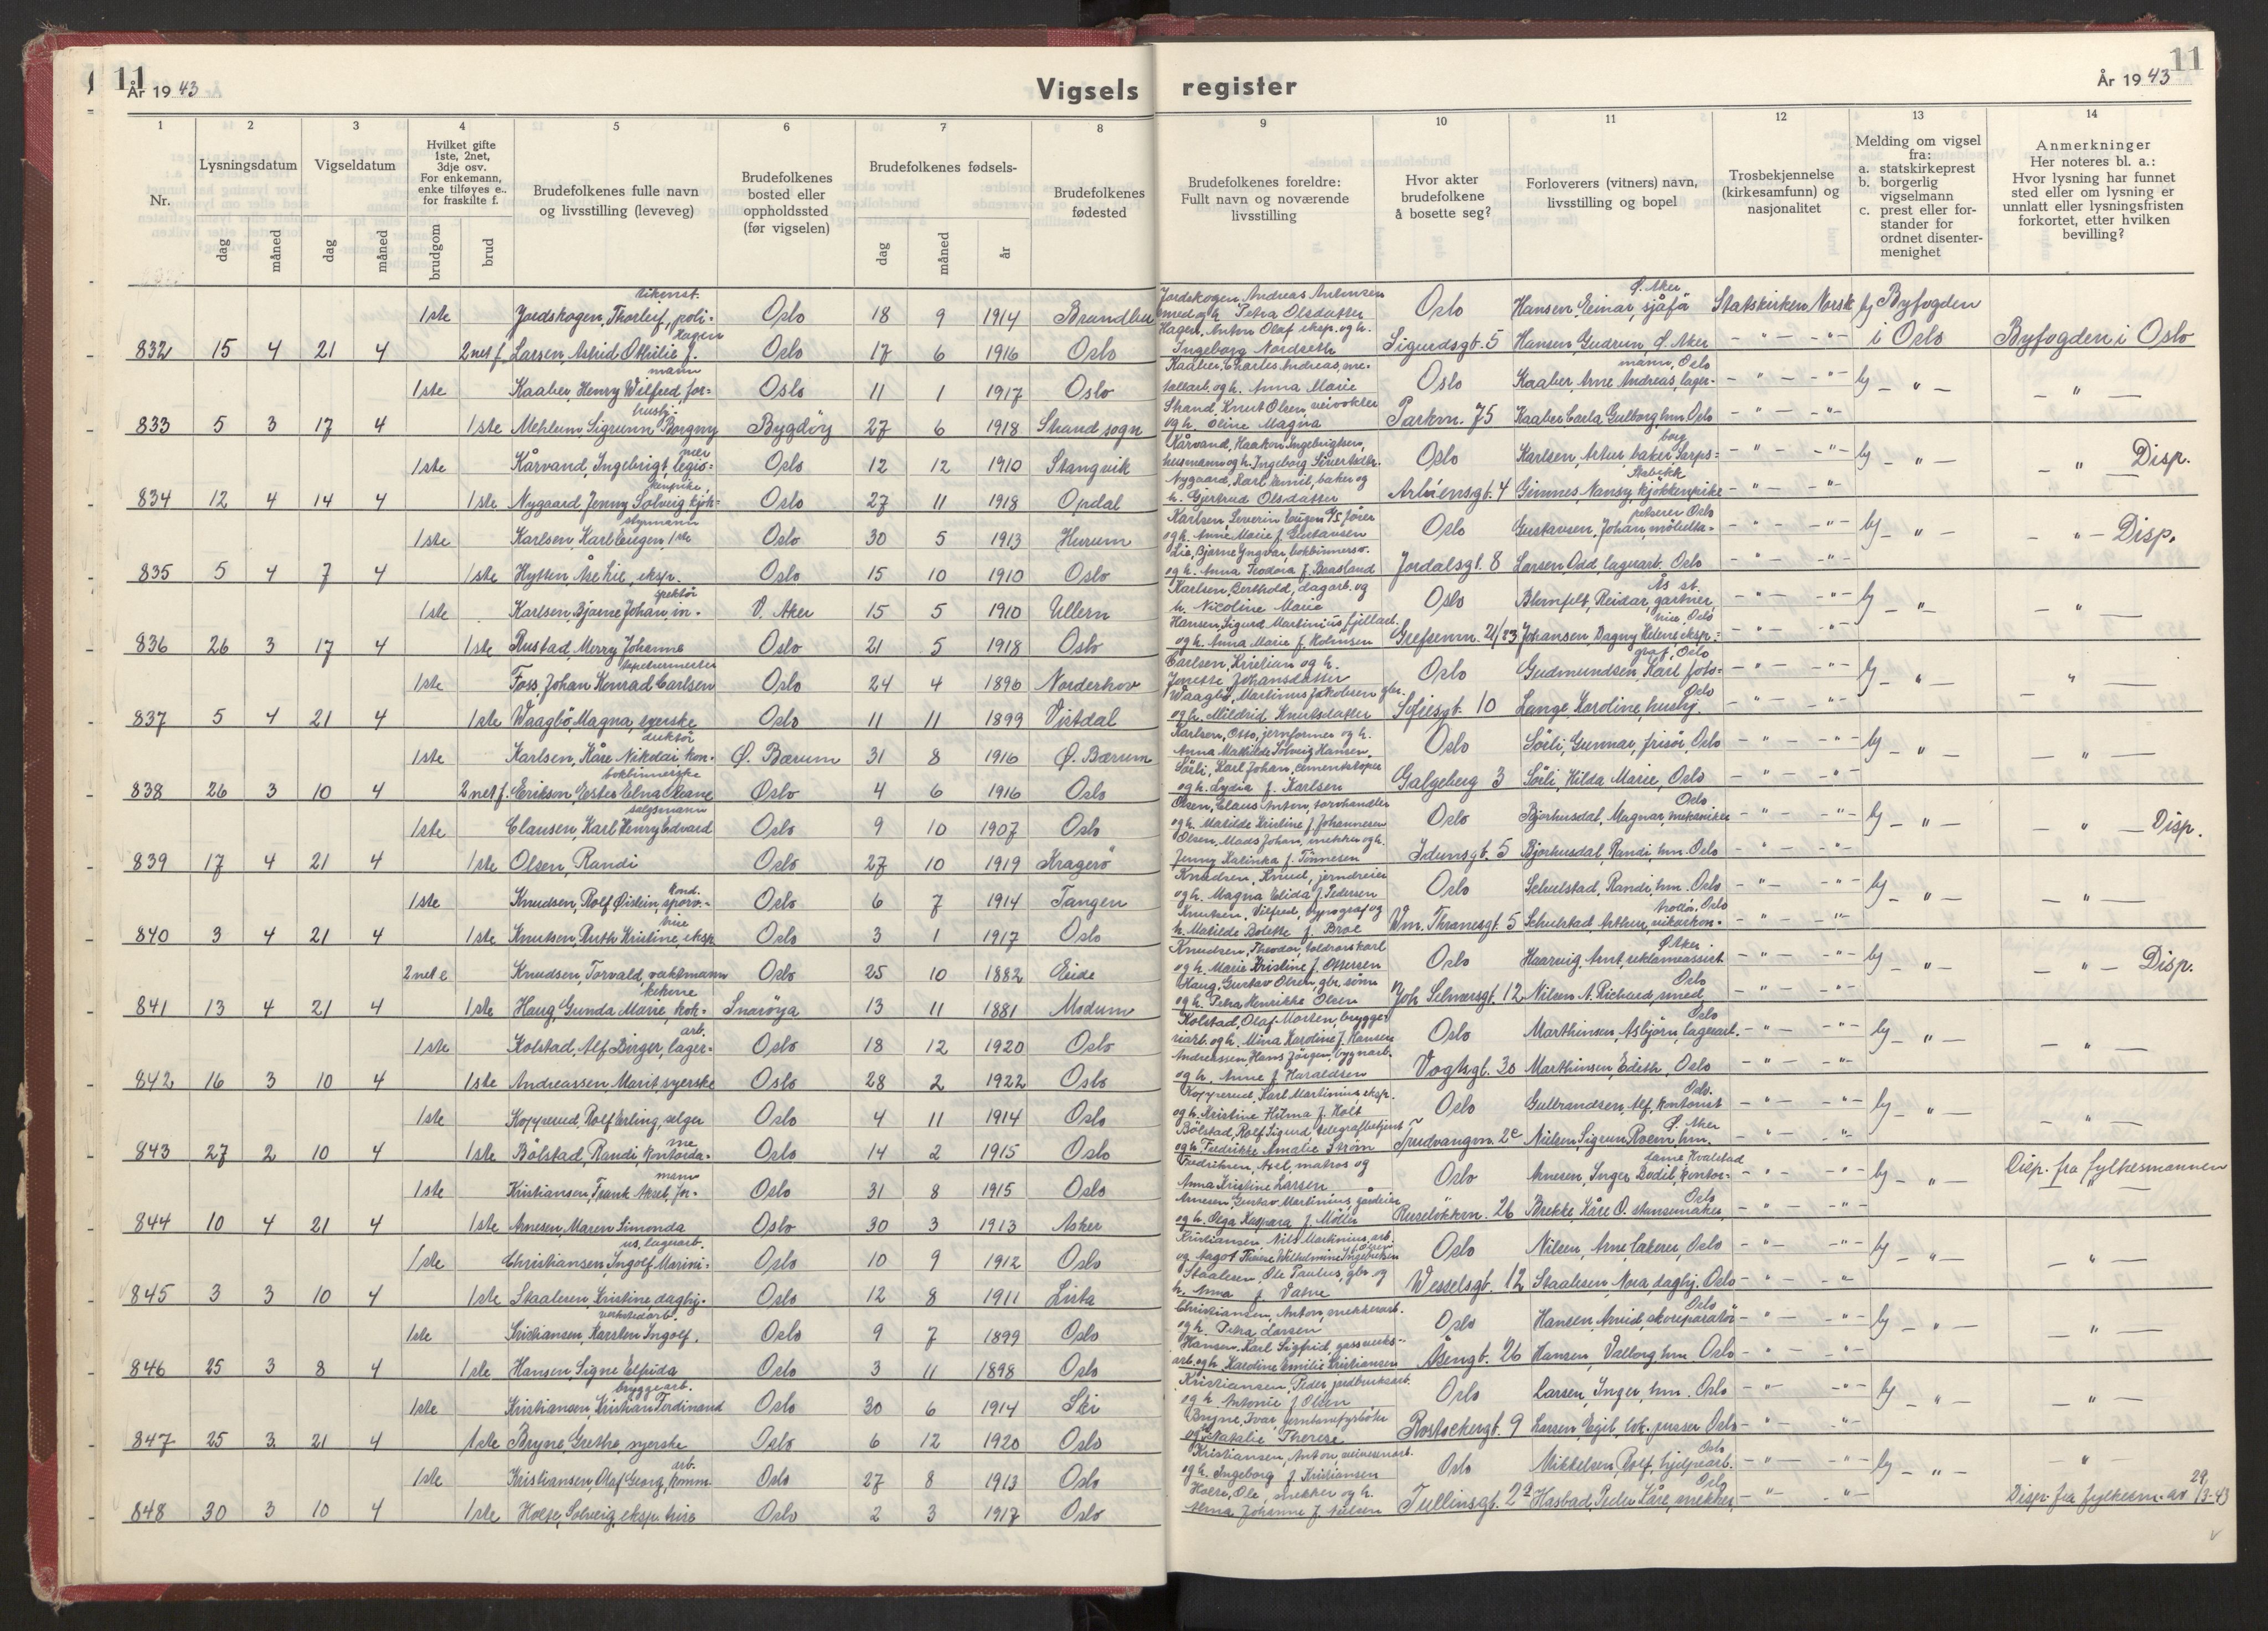 11
År 19 43
Vigsels register
År 19 43
11
1 2 3 4 5 6 7 8 9 10 11 12 13 14
Nr.
Lysningsdatum
dag måned
Vigseldatum
dag måned
Hvilket gifte
1ste, 2net,
3dje osv.
For enkemann,
enke tilføyes e.,
for fraskilte f.
brudgom brud
Brudefolkenes fulle navn
og livsstilling (leveveg)
Brudefolkenes
bosted eller
oppholdssted
(før vigselen)
Brudefolkenes fødsels-
dag måned år
Brudefolkenes
fødested
Brudefolkenes foreldre:
Fullt navn og noværende
livsstilling
Hvor akter
brudefolkene
å bosette seg?
Forloverers (vitners) navn,
livsstilling og bopel
Trosbekjennelse
(kirkesamfunn) og
nasjonalitet
Melding om vigsel
fra:
a. statskirkeprest
b. borgerlig
vigselmann
c. prest eller for-
stander for
ordnet disenter-
menighet
Anmerkninger
Her noteres bl. a.:
Hvor lysning har funnet
sted eller om lysning er
unnlatt eller lysningsfristen
forkortet, etter hvilken
bevilling?
1ste Jordskogen, Thorleif, poli- Oslo 18 9 1914 Jordskogen Andreas Oslo Hansen, Einar, sjåfør Ø. Aker Statskirken Norsk b) Byfogden
832 15 4 21 4 2net f. Larsen, Astrid Othilie f. Hagen Oslo 17 6 1916 Oslo Hagen, Anton Olaf eksp. og h. Ingeborg Nordseth Sigurdsgt. 5 Hansen, Gudrun, Ø. Aker - " - - " - i Oslo Byfogden i Oslo
1ste Kaaber, Henry Wilfred, for-mann Oslo 11 1 1917 Oslo Kaaber, Charles Andreas, me-tallarb. og h. Anna Marie Oslo Kaaber, Arne Andreas, lager-mann, Oslo - " - - " - b) - " - "
833 5 3 17 4 1ste Mehlum, Sigrunn Borgny hushj. Bygdöy 27 6 1918 Strand sogn Strand, Knut Olsen, og h. Oline Magna Parkvn. 75 Kaaber Carla Gulborg hm. Oslo - " - - " -
1ste Kårvand, Ingebrigt, legio-nær Oslo 12 12 1910 Stangvik Kårvand, Haakon Ingebrigtsen, husmann og h. Ingeborg Sivertsdtr. Oslo Karlsen, Artur, baker Sarps-borg - " - - " - b) - " - - " - Disp.
834 12 4 14 4 1ste Nygaard Jenny Solveig kjök-kenpike, Oslo 27 11 1918 Opdal Nygaard, Karl Emil, baker og h. Gjertrud Olsdatter Arbiensgt. 4 Gimnes, Nansy, kjökkenpike Stabekk - " - - " -
1ste Karlsen, Karl Eugen, 1ste styrmann Oslo 30 5 1913 Hurum Karlsen, Severin Eugen og h. Anne Marie f. Gustavsen Oslo Gustavsen, Johan, möbelta-petserer Oslo - " - - " - b) - " - - " - Disp.
835 5 4 7 4 1ste Hytten Åse Lie, eksp. Oslo 15 10 1910 Oslo Lie, Bjarne Yngvar, og h. Anna Teodora f. Baasland Jordalsgt. 8 Larsen, Odd, lagerarb. Oslo - " - - " -
1ste Karlsen, Bjarne Johan, in-spektör V. Aker 15 5 1910 Ullern Karlsen, Berthold, dagarb. og h. Nicoline Marie Oslo Blomfelt, Reidar, gartner, Ås st. - " - - " - b) - " - "
836 26 3 17 4 1ste Rustad, Merry Johanne Oslo 21 5 1918 Oslo Hansen, Sigurd Martinius og h. Anna Marie f. Holmsen Grefsenvn. 21/23 Johansen, Dagny Helene eksp.-trise, Oslo - " - - " -
1ste Foss, Johan Konrad Carlsen tapetsermester Oslo 24 4 1896 Norderhov Carlsen, Kristian og h. Jonette Johansdatter Oslo Gudmundsen, Karl, foto-graf, Oslo - " - - " - b) - " - "
837 5 4 21 4 1ste Waagbö, Magna, syerske Oslo 11 11 1899 Vistdal Waagbö, Martinus Jakobsen gbr. og h. Mildrid Knutsdatter Sofiesgt. 10 Lange, Karoline, hushj. Oslo - " - - " -
1ste Karlsen, Kåre Nikolai, kon-duktör Ø. Bærum 31 8 1916 Ø. Bærum Karlsen, Otto, jernformer og h. Anna Mathilde Solveig Hansen, Oslo Söeli, Gunnar, frisör, Oslo - " - - " - b) - " - "
838 26 3 10 4 2net f. Erikson, Ester Elna bokbinnerske Oslo 4 6 1916 Oslo Söeli, Karl Johan, og h. Lydia f. Karlsen Galgeberg 3 Söeli, Hilda Marie, Oslo - " - - " -
1ste Clausen, Karl Henry Edvard salgsmann Oslo 9 10 1907 Oslo Olsen, Claus Anton, torvhandler og h. Matilde Kristine f. Johannesen Oslo Bjorhusdal, Magnar, mekaniker Oslo - " - - " - b) - " - - " - Disp.
839 17 4 21 4 1ste Olsen, Randi Oslo 27 10 1919 Kragerö Olsen, Mads Johan, snekker og h. Jenny Kalinka f. Tönnesen Idunsgt. 5 Bjorhusdal, Randi, hm. Oslo - " - - " -
1ste Knudsen, Rolf Øistein, sporv.-kond. Oslo 6 7 1914 Tangen Knudsen, Knud, jerndreier og h. Magna Elida f. Pedersen Oslo Schulstad, Randi, hm. Oslo - " - - " - b) - " - "
840 3 4 21 4 1ste Knutsen, Ruth Kristine, eksp.-trise Oslo 3 1 1917 Oslo Knutsen, Vilfred, typograf og h. Matilde Bolette f. Broe Vm. Thranesgt. 5 Schulstad Arthur, Oslo - " - - " -
2net e Knudsen, Torvald, vaktmann Oslo 25 10 1882 Eide Knudsen, Theodor, og h. Marie Kristine f. Ottersen Oslo Haarvig, Arnt, reklameassist. Ø Aker - " - - " - b) - " - - " - Disp.
841 13 4 21 4 1ste Haug, Gunda Marie, kok-kekone Snaröya 13 11 1881 Modum Haug, Gustav Olsen, gbr. sönn og h. Petra Henrikke Olsen Joh. Selmersgt. 12 Nilsen A. Richard, smed, Oslo - " - - " -
1ste Kolstad, Alf Birger, lager-arb. Oslo 18 12 1920 Oslo Kolstad, Olaf Morten, brygge-riarb. og h. Mina Karoline f. Hansen Oslo Marthinsen, Asbjörn, lagerarb. Oslo - " - - " - b) - " - "
842 16 3 10 4 1ste Andreassen, Marit, syerske Oslo 28 2 1922 Oslo Andreassen, Hans Jörgen, bygnarb. og h. Anne f. Haraldsen Vogtsgt. 30 Marthinsen, Edith, Oslo - " - - " -
1ste Kopperud, Rolf Erling, selger Oslo 4 11 1914 Oslo Kopperud, Karl Martinius, eksp. og h. Kristine Hilma f. Holt Oslo Gulbrandsen, Alf, kontorist Oslo. - " - - " - b) - " - "
843 27 2 10 4 1ste Bölstad, Randi, kontorda-me Oslo 14 2 1915 Oslo Bölstad, Rolf Sigurd, telegrafbetjent og h. Fredrikke Amalie Ström Trudvangvn. 2c Nielsen, Sigrun Roem hm. Ø. Aker - " - - " -
1ste Kristiansen, Frank Aksel, for-mann Oslo 31 8 1915 Oslo Fredriksen, Axel, matros og Anna Kristine Larsen Oslo Arnesen, Inger Bodil, kontor-dame Hvalstad - " - - " - b) - " - Disp. fra fylkesmannen
844 10 4 21 4 1ste Arnesen, Maren Simonda Oslo 30 3 1913 Asker Arnesen, Gustav Martinius, gårdeier og h. Olga Kaspara f. Möller Ruselökkvn. 26 Brekke, Kåre O. stansemaker, Oslo - " - - " -
1ste Christiansen, Ingolf Marini-us, lagerarb. Oslo 10 9 1912 Oslo Kristiansen, Nils Martinius, arb. og Aagot Thoine Wilhelmine Ingebretsen Oslo Nilsen, Arne, lakerer, Oslo - " - - " - b) - " - "
845 3 3 10 4 1ste Staalesen, Kristine, daghj. Oslo 12 8 1911 Lista Staalesen, Ole Paulus, gbr. og h. Anna f. Vatne Wesselsgt. 12 Staalesen, Nora, daghj. Oslo - " - - " -
1ste Kristiansen, Karsten Ingolf, verkstedarb. Oslo 9 7 1899 Oslo Christiansen, Anton, snekkerarb. og h. Petra Larsen Oslo Hansen, Arvid, skoreparatör Oslo - " - - " - b) - " - "
846 25 3 8 4 1ste Hansen, Signe Elfrida Oslo 3 11 1898 Oslo Hansen, Karl Sigfrid, gassverks-arb. og h. Kardine Emilie Kristiansen Åsengt. 26 Hansen, Valborg hm. Oslo - " - - " -
1ste Kristiansen, Kristian Ferdinand bryggearb. Oslo 30 6 1914 Ski Kristiansen, Peder, jordbruksarb. og h. Antonie f. Olsen Oslo Larsen, Inger, hm. Oslo - " - - " - b) - " - "
847 25 3 21 4 1ste Bryne Grethe, syerske Oslo 6 12 1920 Oslo Bryne, Ivar, og h. Natalie Therese Rostockergt. 9 Larsen, Egil, lok. pusser Oslo - " - - " -
1ste Kristiansen, Olaf Georg, komm. arb. Oslo 27 8 1913 Oslo Kristiansen, Anton, og h. Ingeborg f. Kristiansen Oslo Mikkelsen, Rolf, hjelpearb. Oslo - " - - " - b) - " - "
848 30 3 10 4 1ste Holje, Solveig, eksp. trise Oslo 2 3 1917 Oslo Holje, Ole, snekker og h. Alma Johanne f. Nielsen Tullinsgt. 2a Hasbad, Peder Kåre, snekker, Oslo - " - - " - Disp. fra fylkesm. av 29/3-43